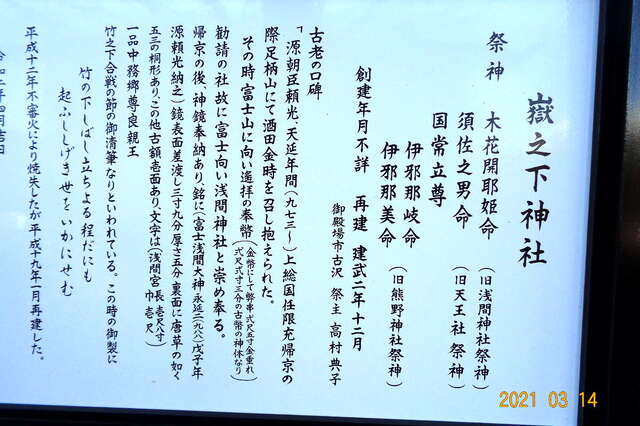 嶽之下神社
祭神　木花開耶姫命（旧浅間神社祭神）
須佐之男命（旧天王社祭神）
国常立尊
伊邪那岐命
伊邪那美命（旧熊野神社祭神）
創建年月不詳　再建　建武二年十二月
御殿場市古沢　祭主　高村典子
古老の口碑
「源朝臣頼光、天延年間（九七三〜）上総国任限充帰京の
際足柄山にて酒田金時を召し抱えられた。
その時富士山に向い遙拝の奉幣（金幣にして弊串弐尺五寸金重れ弐尺弐寸三分の古幣の神体なり）
勧請の社故に富士向い浅間神社と崇め奉る。
帰京の後、神鏡奉納あり、銘に（富士浅間大神永延（九八八）戊子年
源頼光納之）鏡表面差渡し三寸九分厚さ五分裏面に唐草の如く
五三の桐形あり、この他古額壱面あり、文字は（浅間宮　長壱尺八寸　巾壱尺）
一品中務郷尊良親王
竹之下合戦の節の御清筆なりといわれている。この時の御製に
竹の下しばし立ちよる程だにも
起ふししげき世をいかにせむ
平成十二年不審火により焼失したが平成十九年一月再建した。
2021 03 14